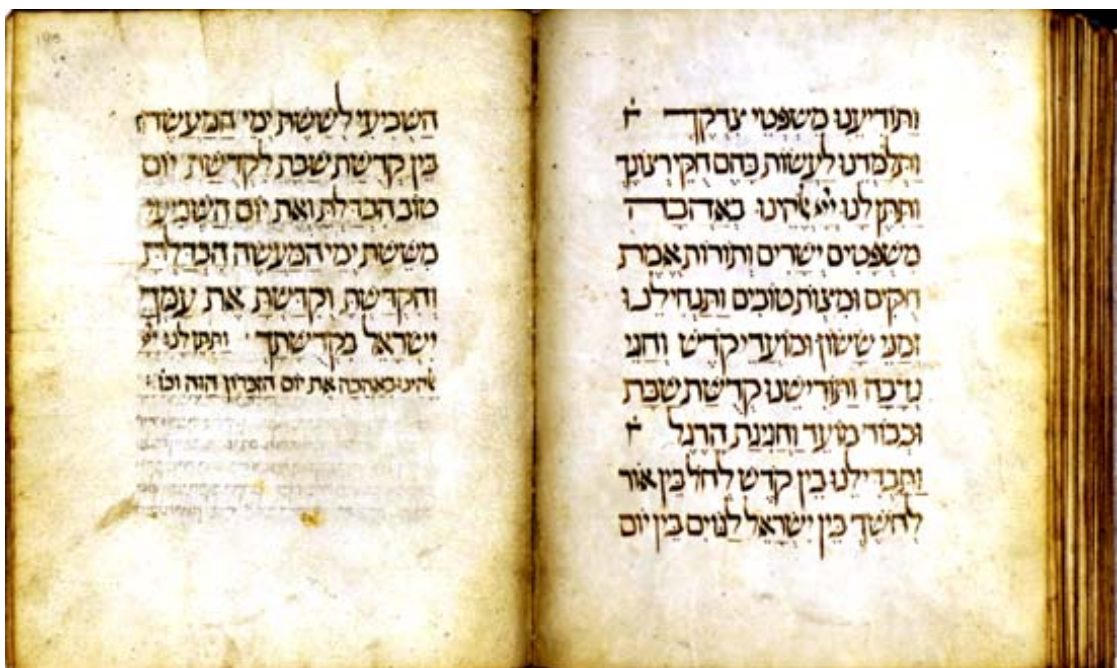 וַתּוֹדִיעֵנוּ מִשְׁפְּטֵי צִדְקֶךָ
וַתְּלַמְּדֵנוּ לַעֲשׂוֹת בָּהֶם חֻקֵּי רְצוֹנֶךָ
וַתִּתֶּן לָנוּ יְיָ אֱלֹהֵינוּ בְּאַהֲבָה
מִשְׁפָּטִים יְשָׁרִים וְתוֹרוֹת אֱמֶת
חֻקִּים וּמִצְוֹת טוֹבִים וַתַּנְחִילֵנוּ
זְמַנֵּי שָׂשׂוֹן וּמוֹעֲדֵי קֹדֶשׁ וְחַגֵּי
נְדָבָה וַתּוֹרִישֵׁנוּ קְדֻשַּׁת שַׁבָּת
וּכְבוֹד מוֹעֵד וַחֲגִיגַת הָרֶגֶל
וַתַּבְדִּילֵנוּ בֵּין קֹדֶשׁ לְחֹל בֵּין אוֹר
לְחֹשֶׁךְ בֵּין יִשְׂרָאֵל לַגּוֹיִם בֵּין יוֹם
הַשְּׁבִיעִי לְשֵׁשֶׁת יְמֵי הַמַּעֲשֶׂה
בֵּין קְדֻשַּׁת שַׁבָּת לִקְדֻשַּׁת יוֹם
טוֹב הִבְדַּלְתָּ וְאֶת יוֹם הַשְּׁבִיעִי
מִשֵּׁשֶׁת יְמֵי הַמַּעֲשֶׂה הִבְדַּלְתָּ
וְהִקְדַּשְׁתָּ וְקִדַּשְׁתָּ אֶת עַמְּךָ
יִשְׂרָאֵל בִּקְדֻשָּׁתֶךָ וַתִּתֶּן לָנוּ יְיָ
אֱלֹהֵינוּ בְּאַהֲבָה אֶת יוֹם הַזִּכָּרוֹן הַזֶּה וְכוּ'